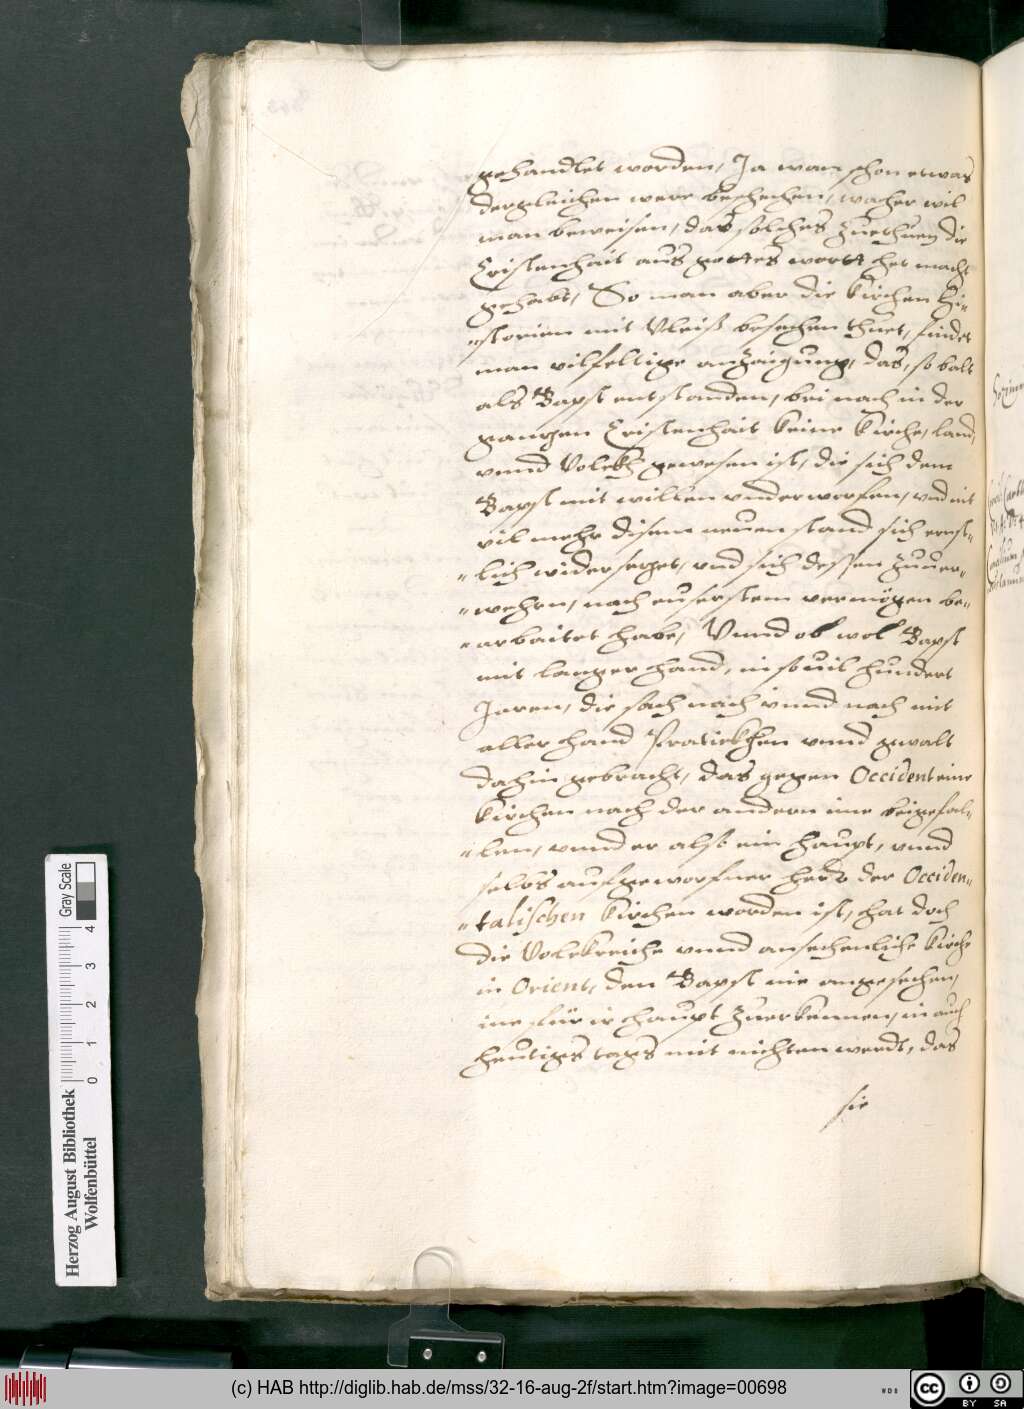 gehandlet worden, Ja wan schon etwas
dergleichen were beschehen, wacher wil
man beweisen, das solches zuethuen die
Cristenhait aus gottes wort her macht
gehabt, So man aber die Kirchen Hi-
-storien mit Vleiß besechen thuet, findet
man vilfeltige anzaigung, das, so balt
als Bapst entstanden, bei nach in der
gantzen Cristenhait keine Kirche, land,
vnnd Volckh gewesen ist, die sich dem
Bapst mit willen vnderworfen, vnd nit
vil mehr disem neuen stand sich ernst-
-lich widersetzet, vnd sich dessen zuuer-
-wehrn, nach euserstem vermögen be-
-arbaitet habe, Vnnd ob wol Bapst
mit langer hand, in souil hundert
Jaren, die sach nach vnnd nach mit
aller hand Pratickhen vnnd gwalt
dahin gebracht, das gegen Occident eine
Kirchen nach der andern ime beigefal-
-len, vnnd er also ein haupt, vnnd
selbs aufgeworfner herr der Occiden-
-talischen Kirchen worden ist, hat doch
die Volckreiche vnnd ansechenliche Kirche
in Orient, den Bapst nie angesechen,
ine für ir haupt zuerkennen, in auch
heutiges tags mit nichten werdt, das
sie
Herzog August Bibliothek
Wolfenbüttel
0 1 2 3 4
Gray Scale
(c) HAB http://diglib.hab.de/mss/32-16-aug-2f/start.htm?image=00698
WDB
CC BY SA